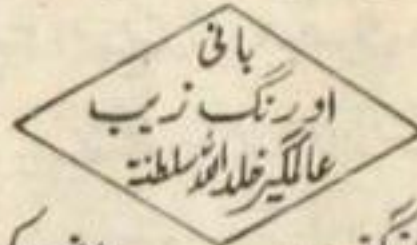 بانی
اورنگ زیب
عالمگیر خلد اللہ سلطنتہ